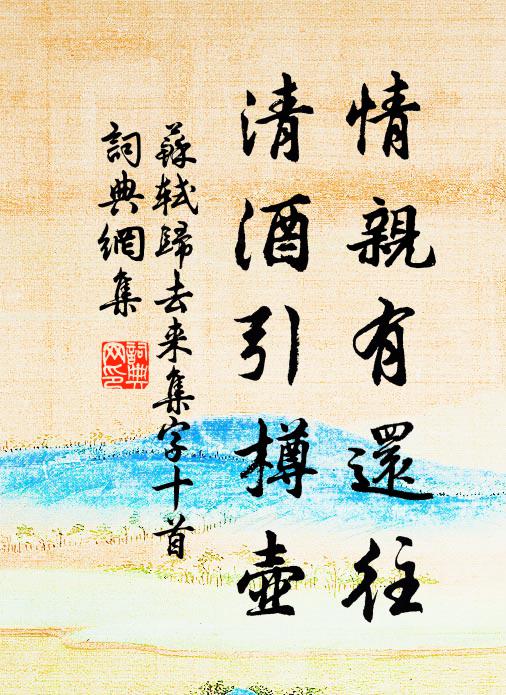 情親有還往
清酒引樽壺
蘇軾歸去来集字十首
詞典網集
詞典网印